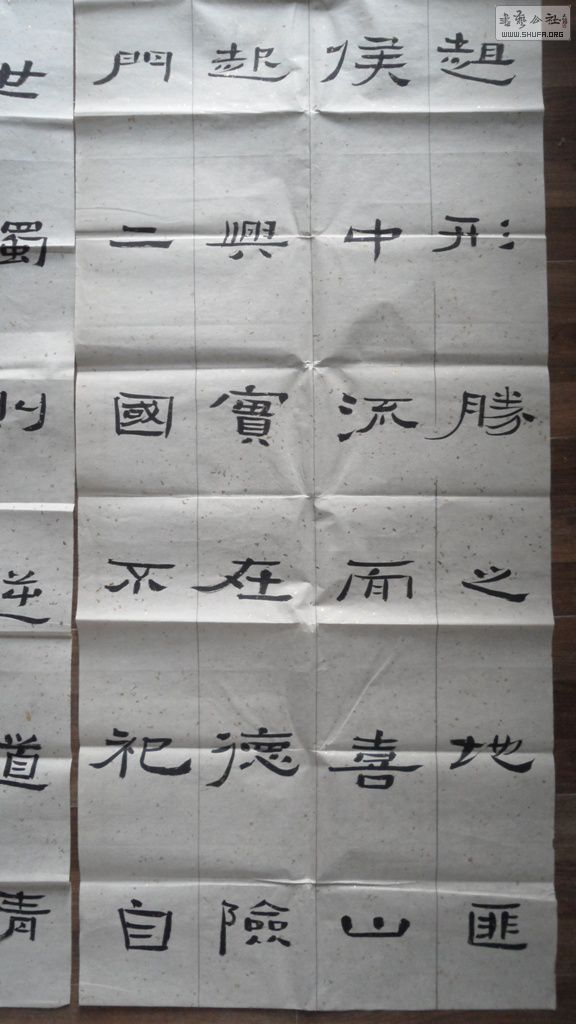 書藝公社
WWW.SHUFA.ORG
趄形勝之地匪
侯中流而喜山
起興實在德險
門二國不祀自
世逆道